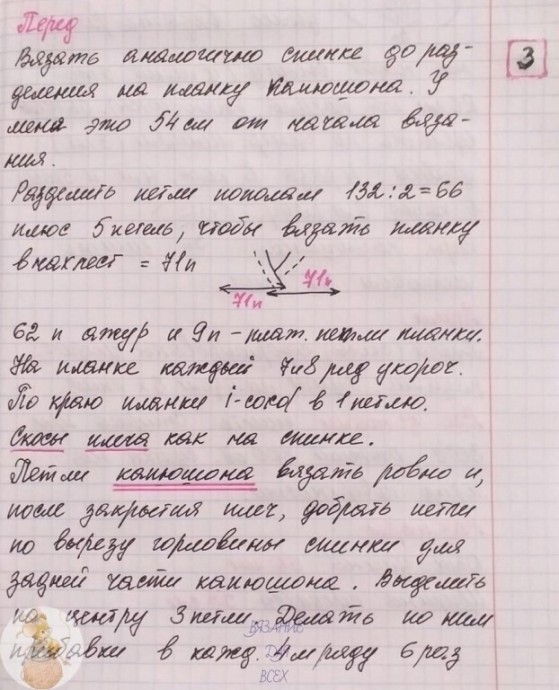 Перед
3
Вязать аналогично спинке до раз-
деления на планку капюшона. У
меня это 54 см от начала вяза-
ния.
Разделить петли пополам 132:2=66
плюс 5 петель, чтобы вязать планку
внахлест = 71п
71п 71п
62 п ажур и 9п - плат. петли планки.
На планке каждый 7и8 ряд укороч.
По краю планки i-cord в 1 петлю.
Скосы плеча как на спинке.
Петли капюшона вязать ровно и,
после закрытия плеч, добрать петли
по вырезу горловины спинки для
задней части капюшона. Выделить
по центру 3 петли. Делать по ним
прибавки в кажд. 4м ряду 6 раз
ВЯЗАНИЕ
ДЛЯ
ВСЕХ